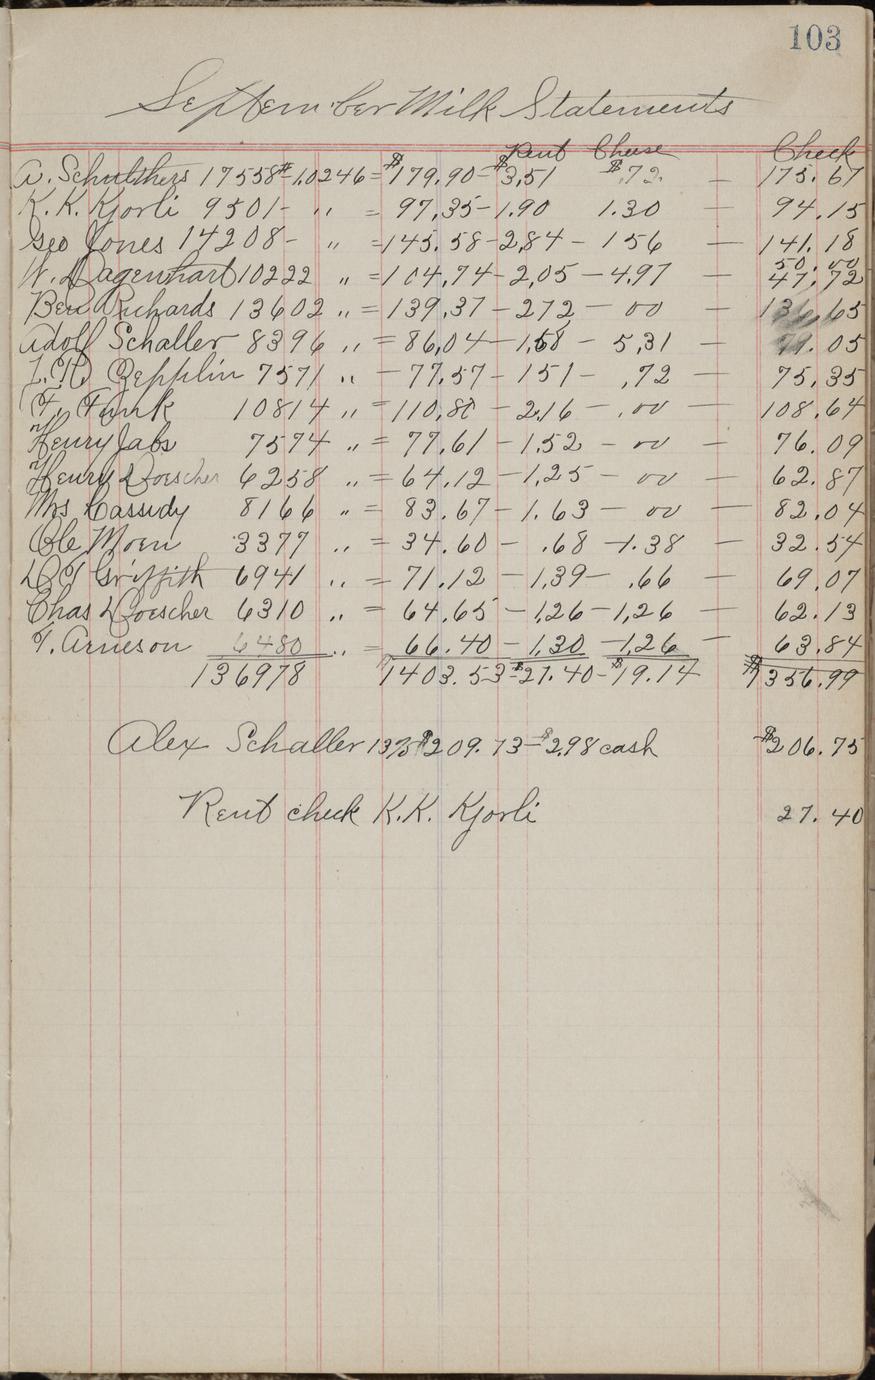 103
September Milk Statements
Rent Cheese Check
A. Schulthers 17558# - 1.0246 = $179.90 - $3,51 $.72. — 175.67
K. K. Kjorli 9501 - " = 97,35 - 1.90 1.30 — 94.15
Geo Jones 14208 - " = 145.58 - 2,84 - 156 — 141.18
50.00
W. Dagenhart 10222 " = 104,74 - 2,05 - 4.97 — 47.72
Ben Richards 13602 " = 139,37 - 272 - 00 — 136.65
Adolf Schaller 8396 " = 86,04 - 1,68 - 5,31 — 79.05
Zepplin 7571 " - 77.57 - 151 - ,72 — 75,35
F. Funk 10814 " = 110,80 - 2,16 - .00 — 108.64
Henry Jabs 7574 " = 77.61 - 1.52 - 00 — 76.09
Henry Doescher 6258 " = 64.12 - 1,25 - 00 — 62.87
Mrs Cassidy 8166 " = 83.67 - 1.63 - 00 — 82.04
Ole Moen 3377 " = 34.60 - .68 - 1.38 — 32.54
Griffith 6941 " = 71.12 - 1,39 - .66 — 69.07
Chas Doescher 6310 " = 64.65 - 1,26 - 1,26 — 62.13
T. Arneson 6480 " = 66.40 - 1,30 - 1,26 — 63.84
136978 $1403.53 - $27.40 - $19.14 $1356.99
Alex Schaller $209.73 - $2.98 cash $206.75
Rent check K.K. Kjorli 27.40